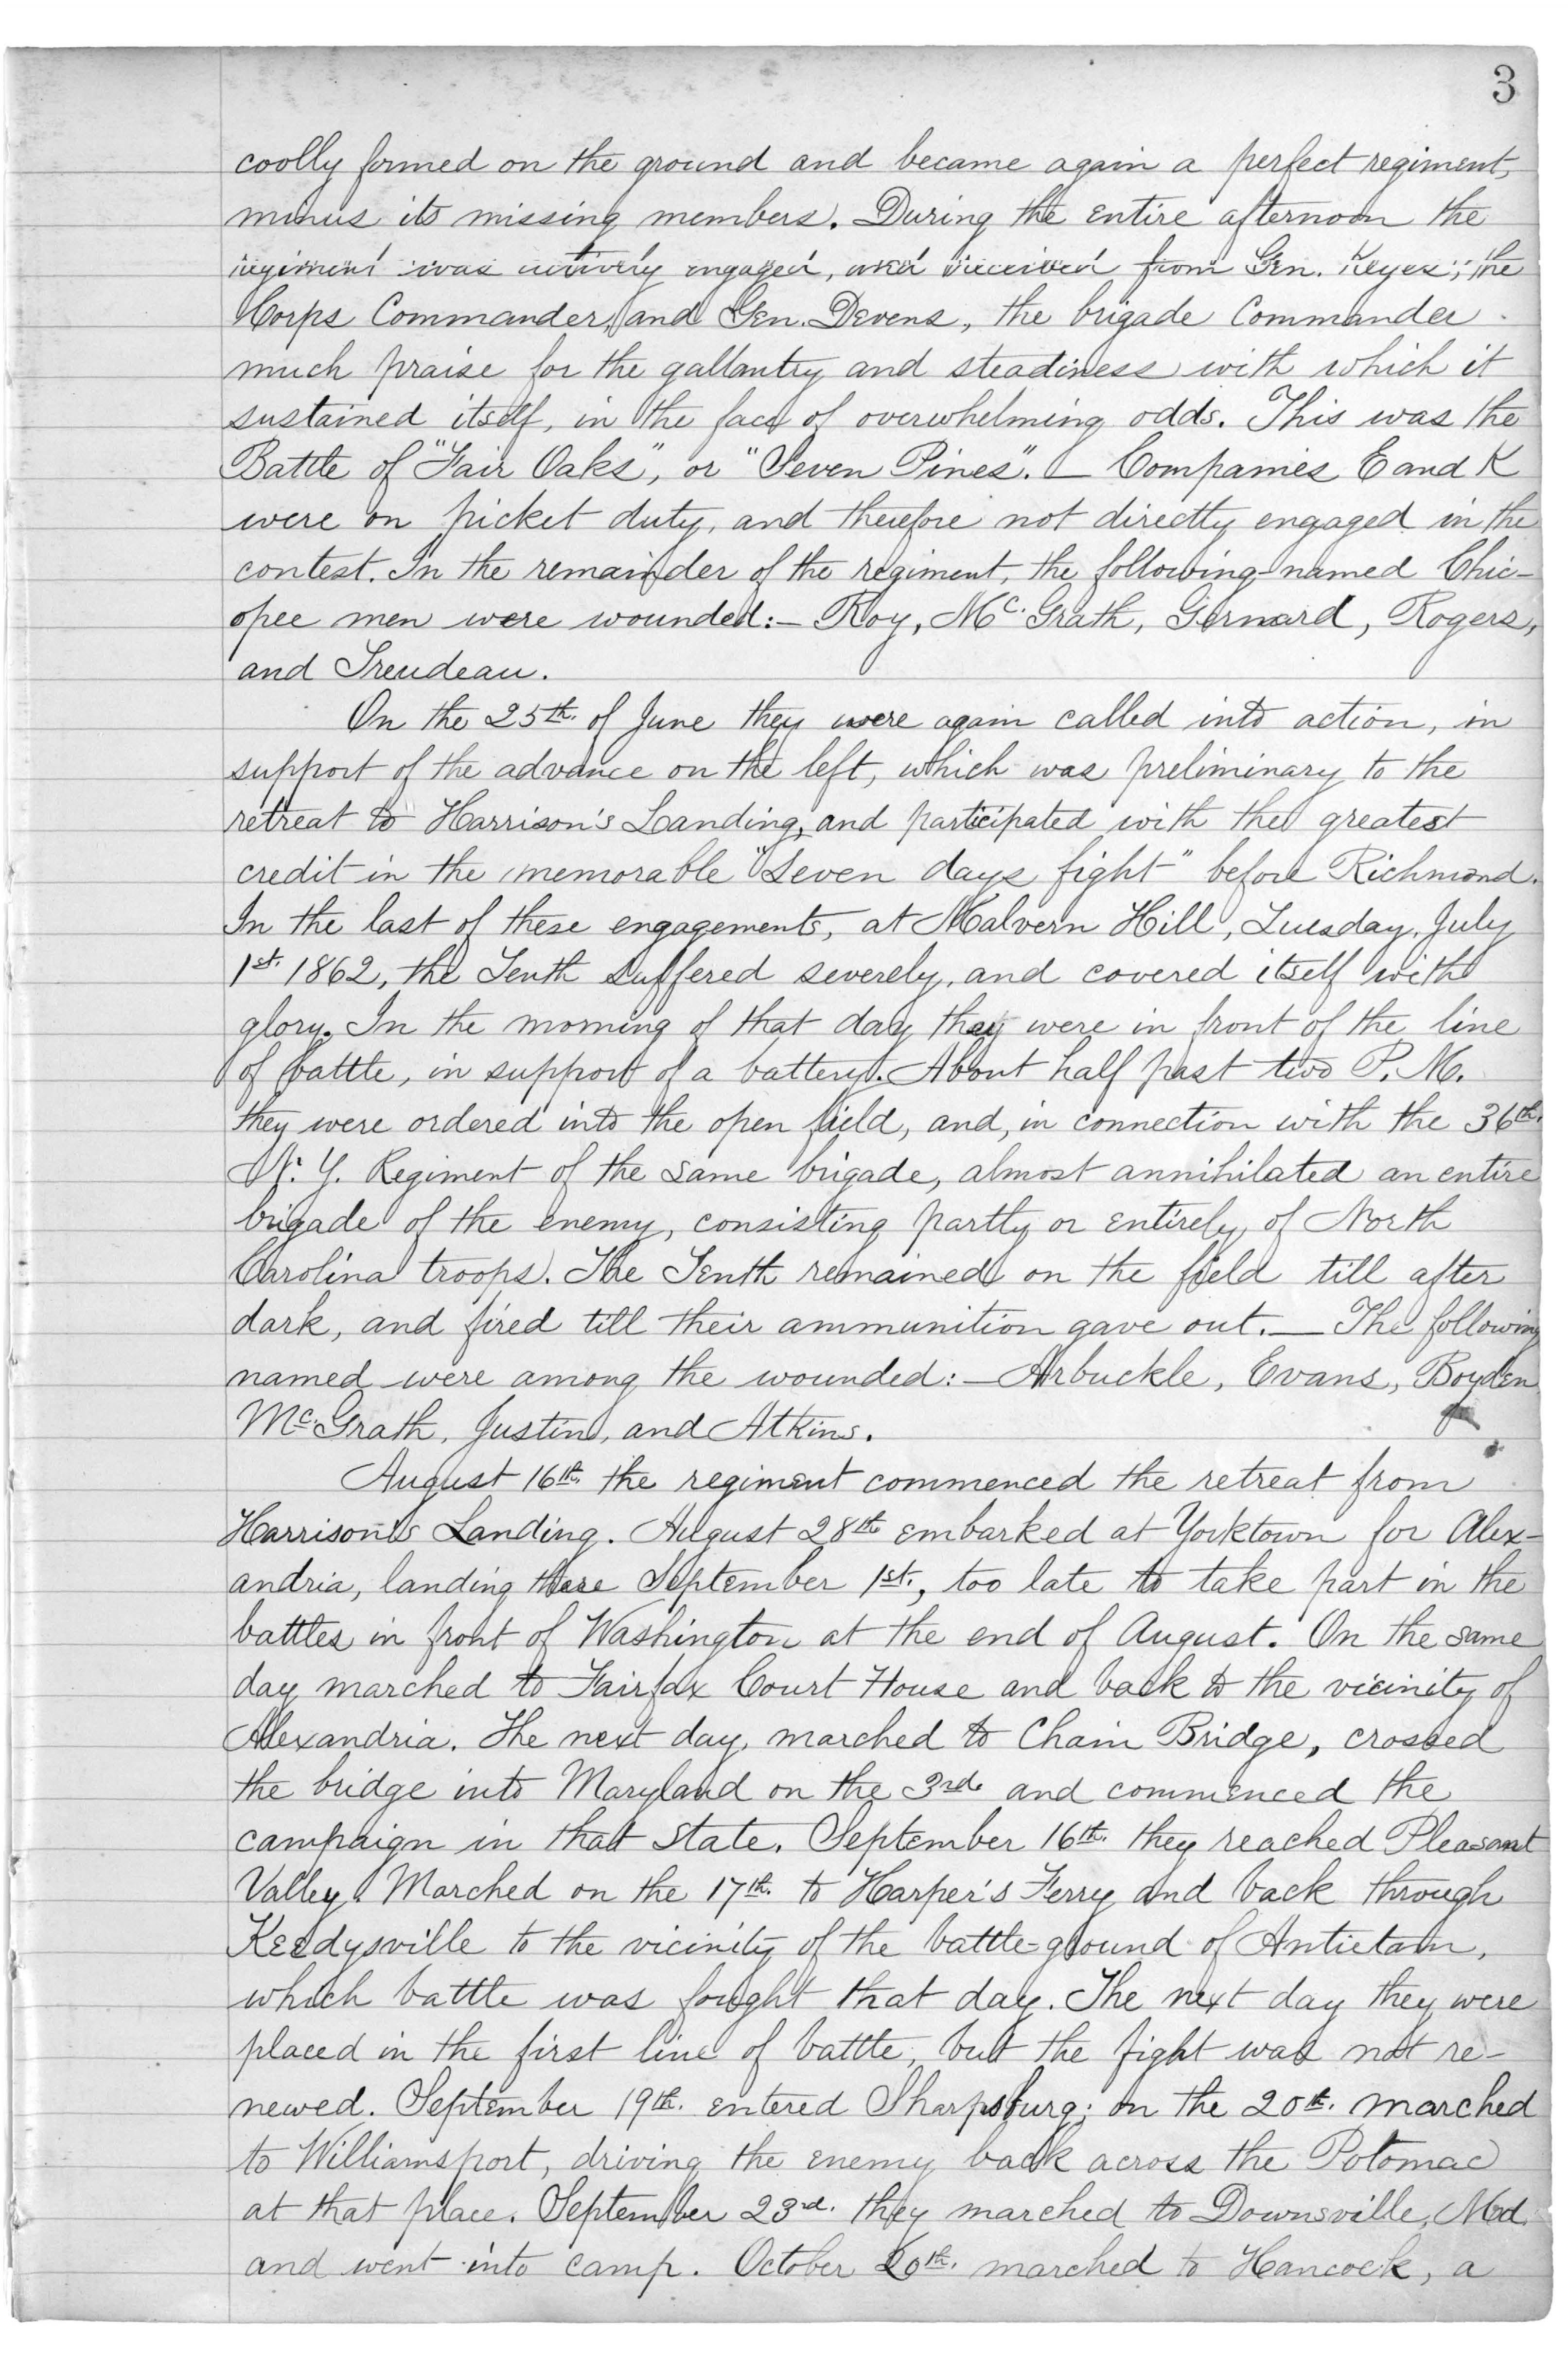 3
coolly formed on the ground and became again a perfect regiment,
minus its missing members. During the entire afternoon the
regiment was actively engaged, and received from Gen. Keyes, the
Corps Commander, and Gen. Devens, the brigade Commander
much praise for the gallantry and steadiness with which it
sustained itself, in the face of overwhelming odds. This was the
Battle of "Fair Oaks", or "Seven Pines". — Companies E and K
were on picket duty, and therefore not directly engaged in the
contest. In the remainder of the regiment, the following-named Chic-
opee men were wounded:— Roy, McGrath, Gernard, Rogers,
and Treudeau.
On the 25th. of June they were again called into action, in
support of the advance on the left, which was preliminary to the
retreat to Harrison's Landing, and participated with the greatest
credit in the memorable "Seven days fight" before Richmond.
In the last of these engagements, at Malvern Hill, Tuesday, July
1st. 1862, the Tenth suffered severely, and covered itself with
glory. In the morning of that day they were in front of the line
of battle, in support of a battery. About half past two P.M.
they were ordered into the open field, and, in connection with the 36th.
N. Y. Regiment of the same brigade, almost annihilated an entire
brigade of the enemy, consisting partly or entirely, of North
Carolina troops. The Tenth remained on the field till after
dark, and fired till their ammunition gave out. — The following
named were among the wounded:— Arbuckle, Evans, Boyden
McGrath, Justin, and Atkins.
August 16th. the regiment commenced the retreat from
Harrison's Landing. August 28th. embarked at Yorktown for Alex-
andria, landing there September 1st., too late to take part in the
battles in front of Washington at the end of August. On the same
day marched to Fairfax Court House and back to the vicinity of
Alexandria. The next day, marched to Chain Bridge, crossed
the bridge into Maryland on the 3rd. and commenced the
campaign in that State. September 16th. they reached Pleasant
Valley. Marched on the 17th. to Harper's Ferry and back through
Keedysville to the vicinity of the battle-ground of Antietam,
which battle was fought that day. The next day they were
placed in the first line of battle, but the fight was not re-
newed. September 19th. entered Sharpsburg; on the 20th. marched
to Williamsport, driving the enemy back across the Potomac
at that place. September 23rd. they marched to Downsville, Md.
and went into camp. October 20th. marched to Hancock, a